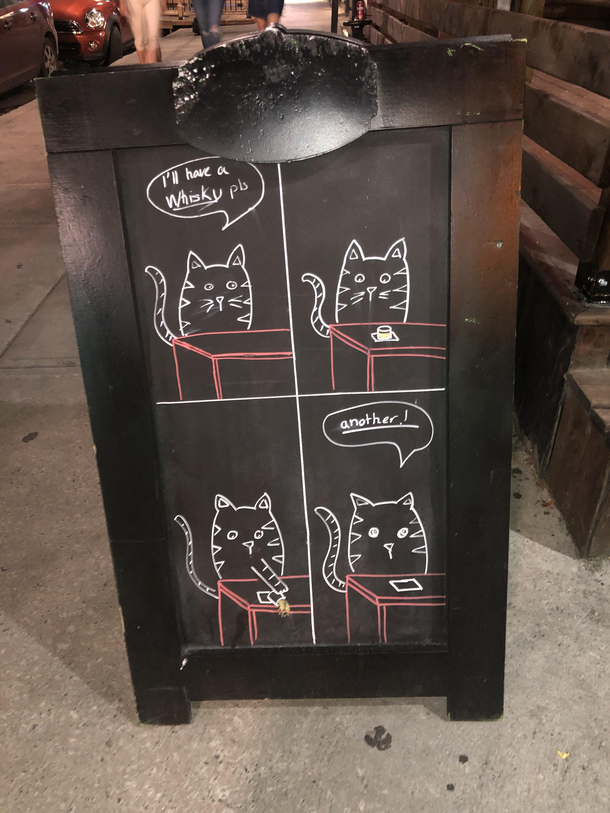 I'll have a
Whisky pls
another!